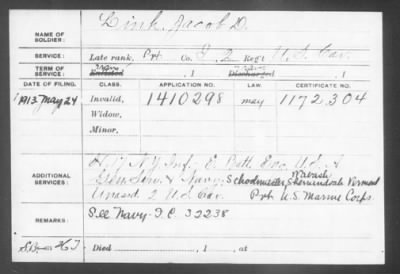 Link, Jacob D.
NAME OF SOLDIER:
SERVICE: Late rank, Pvt Co. I, 2 Reg't U.S. Cav.
TERM OF SERVICE: Enlisted , 1 Discharged , 1
DATE OF FILING. CLASS. APPLICATION NO. LAW. CERTIFICATE NO.
1913 May 24 Invalid, 1410298 may 1172304
Widow,
Minor,
H, N.Y. Inf. E Batt. Eng U.S.A
ADDITIONAL SERVICES: Gen Serv. & Navy. Schoolmaster, Wabash
Shenandoah Vermont
Unasst 2 U.S. Cav. Pvt. U.S. Marine Corps.
REMARKS: See Navy I.C. 32238
Died , 1 , at